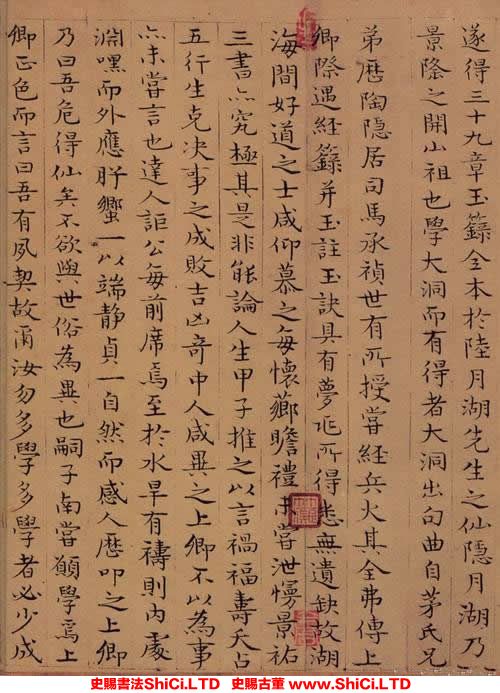 遂得三十九章玉籙全本於陸月湖先生之仙隱月湖乃
景隆之開山祖也學大洞而有得者大洞出句曲自茅氏兄
弟歷陶隱居司馬承禎世有所授嘗經兵火其全弗傳上
卿際遇經籙并玉註玉訣具有夢兆所得悉無遺缺故湖
海間好道之士咸仰慕之每懷薌瞻禮未嘗泄慢景祐
三書亦究極其是非能論人生甲子推之以言禍福壽夭占
五行生克决事之成敗吉凶奇中人咸異之上卿不以為事
亦未嘗言也達人詎公每前席焉至於水旱有禱則內處
淵嘿而外應肸蠁一以端静貞一自然而感人歷叩之上卿
乃曰吾危得仙矣不欲與世俗為異也嗣子南嘗願學焉上
卿正色而言曰吾有夙契故爾汝勿多學多學者必少成
史賜書法ShiCi.LTD 史賜古董 ShiCi.LTD